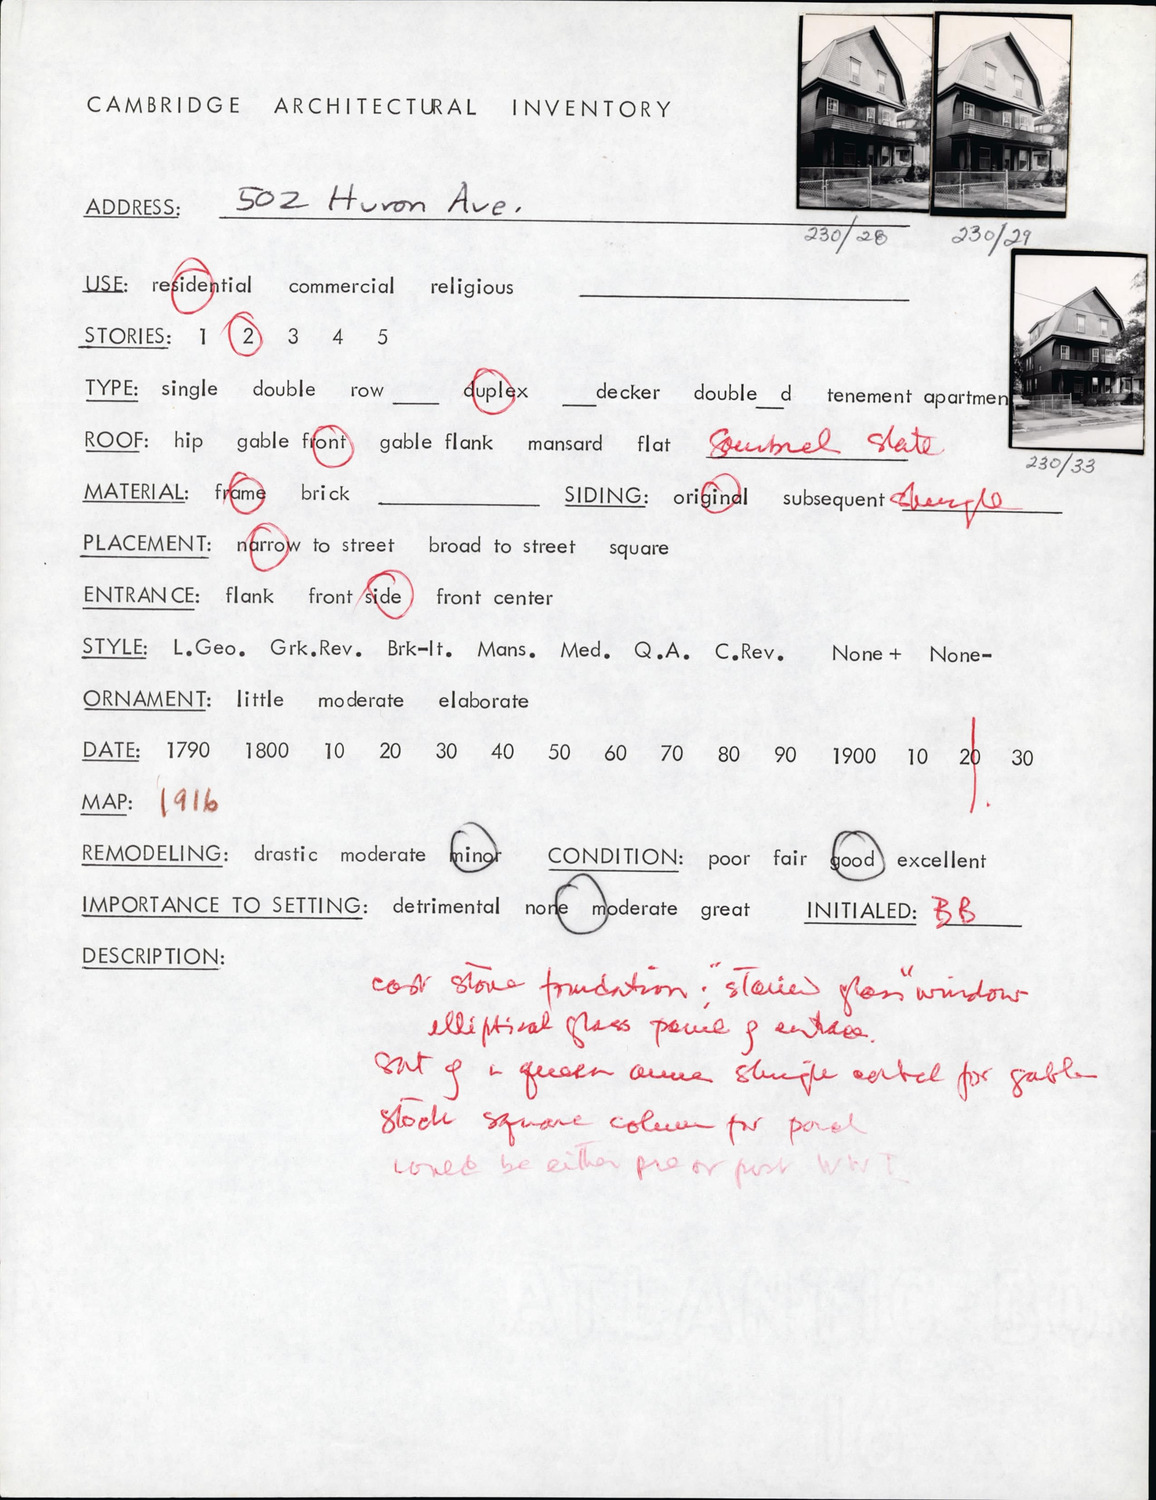 CAMBRIDGE ARCHITECTURAL INVENTORY
ADDRESS: 502 Huron Ave.
230/28 230/29
USE: residential commercial religious
STORIES: 1 2 3 4 5
TYPE: single double row ____ duplex ___decker double__d tenement apartmen
ROOF: hip gable front gable flank mansard flat slate
230/33
MATERIAL: frame brick SIDING: original subsequent shingle
PLACEMENT: narrow to street broad to street square
ENTRANCE: flank front side front center
STYLE: L.Geo. Grk.Rev. Brk-It. Mans. Med. Q.A. C.Rev. None+ None-
ORNAMENT: little moderate elaborate
DATE: 1790 1800 10 20 30 40 50 60 70 80 90 1900 10 20 30
MAP: 1916
REMODELING: drastic moderate minor CONDITION: poor fair good excellent
IMPORTANCE TO SETTING: detrimental none moderate great INITIALED: BB
DESCRIPTION:
cast stone foundation; "stained glass" window
elliptical glass panel of entrance.
sort of a queen anne shingle corbel for gable
stock square column for porch
could be either pre or post WWI